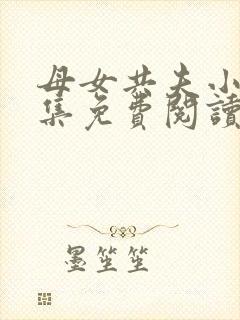 母女共夫小
集免費閱讀
墨笙笙